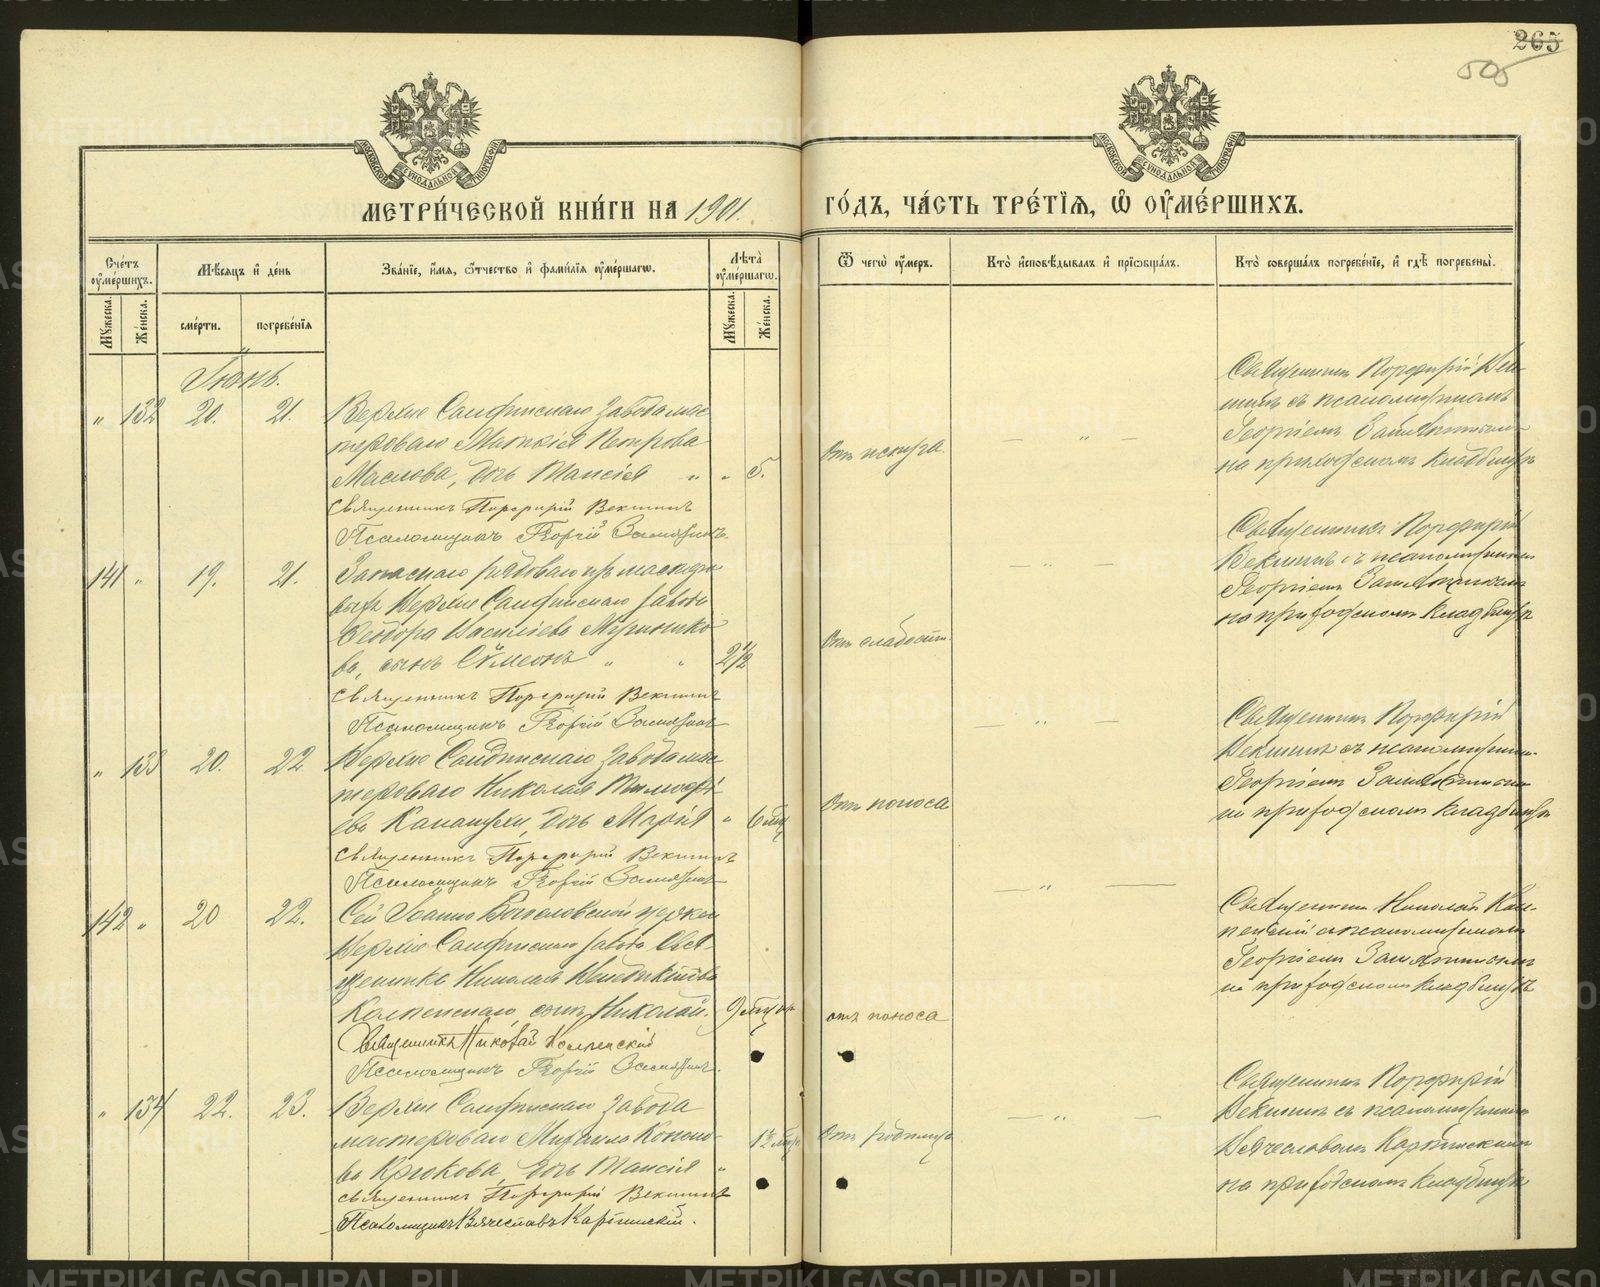 265
505
МЕТРИ́ЧЕСКОЙ КНИ́ГИ НА 1901.
ГО́ДЪ, ЧА́СТЬ ТРЕ́ТІѦ, Ѽ ОУМЕ́РШИХЪ.
Сче́тъ оуме́ршихъ.
Мꙋ́жеска.
Же́нска.
Мѣ́сѧцъ и де́нь
сме́рти.
погребе́нїѧ
Зва́нїе, и́мѧ, ѻ́тчество и фами́лїѧ оуме́ршагѡ.
Лѣ́та оуме́ршагѡ.
Мꙋ́жеска.
Же́нска.
Ѿ чегѡ̀ оу́меръ.
Кто̀ и҆сповѣ́дывалъ и прїѡбща́лъ.
Кто̀ соверша́лъ погребе́нїе, и гдѣ̀ погребены̀.
Іюнь.
" 132 20. 21.
Верхне Салдинскаго завода мас
терового Петрова
Маслова, дочь Таисія " " 5.
Священникъ Порфирій Векшинъ
Псаломщикъ Георгій
Священникъ Порфирій Век-
шинъ съ псаломщикомъ
Георгіемъ
на приходскомъ кладбищѣ
141 " 19. 21.
Запаснаго рядового изъ мастеро
выхъ Верхне Салдинскаго завода
Ѳеодора Васильева
ва, сынъ Сѵмеонъ " " 2½
Священникъ Порфирій Векшинъ
Псаломщикъ Георгій
Отъ слабости.
Священникъ Порфирій
Векшинъ съ псаломщикомъ
Георгіемъ
на приходскомъ кладбищѣ
" 133 20. 22
Верхне Салдинскаго завода мас
терового Николая Тимофѣ
ева дочь Марія " 6 мѣс
Священникъ Порфирій Векшинъ
Псаломщикъ Георгій
Отъ поноса
Священникъ Порфирій
Векшинъ съ псаломщикомъ
Георгіемъ
на приходскомъ кладбищѣ
142 " 20 22.
Сей Іоанно Богословской церкви
Верхне Салдинскаго завода Свя
щенника Николая
сынъ Николай. 9 мѣсяц
Священникъ Николай
Псаломщикъ Георгій
отъ поноса
Священникъ Николай
съ псаломщикомъ
Георгіемъ
на приходскомъ кладбищѣ
" 134 22. 23.
Верхне Салдинскаго завода
мастерового Михаила Кононо-
ва Крюкова, дочь Таисія " 1½ мѣс
Священникъ Порфирій Векшинъ
Псаломщикъ Вячеславъ Каргинскій.
Отъ родимца
Священникъ Порфирій
Векшинъ съ псаломщикомъ
Вячеславомъ Каргинскимъ
на приходскомъ кладбищѣ
METRIKI.GASO-URAL.RU